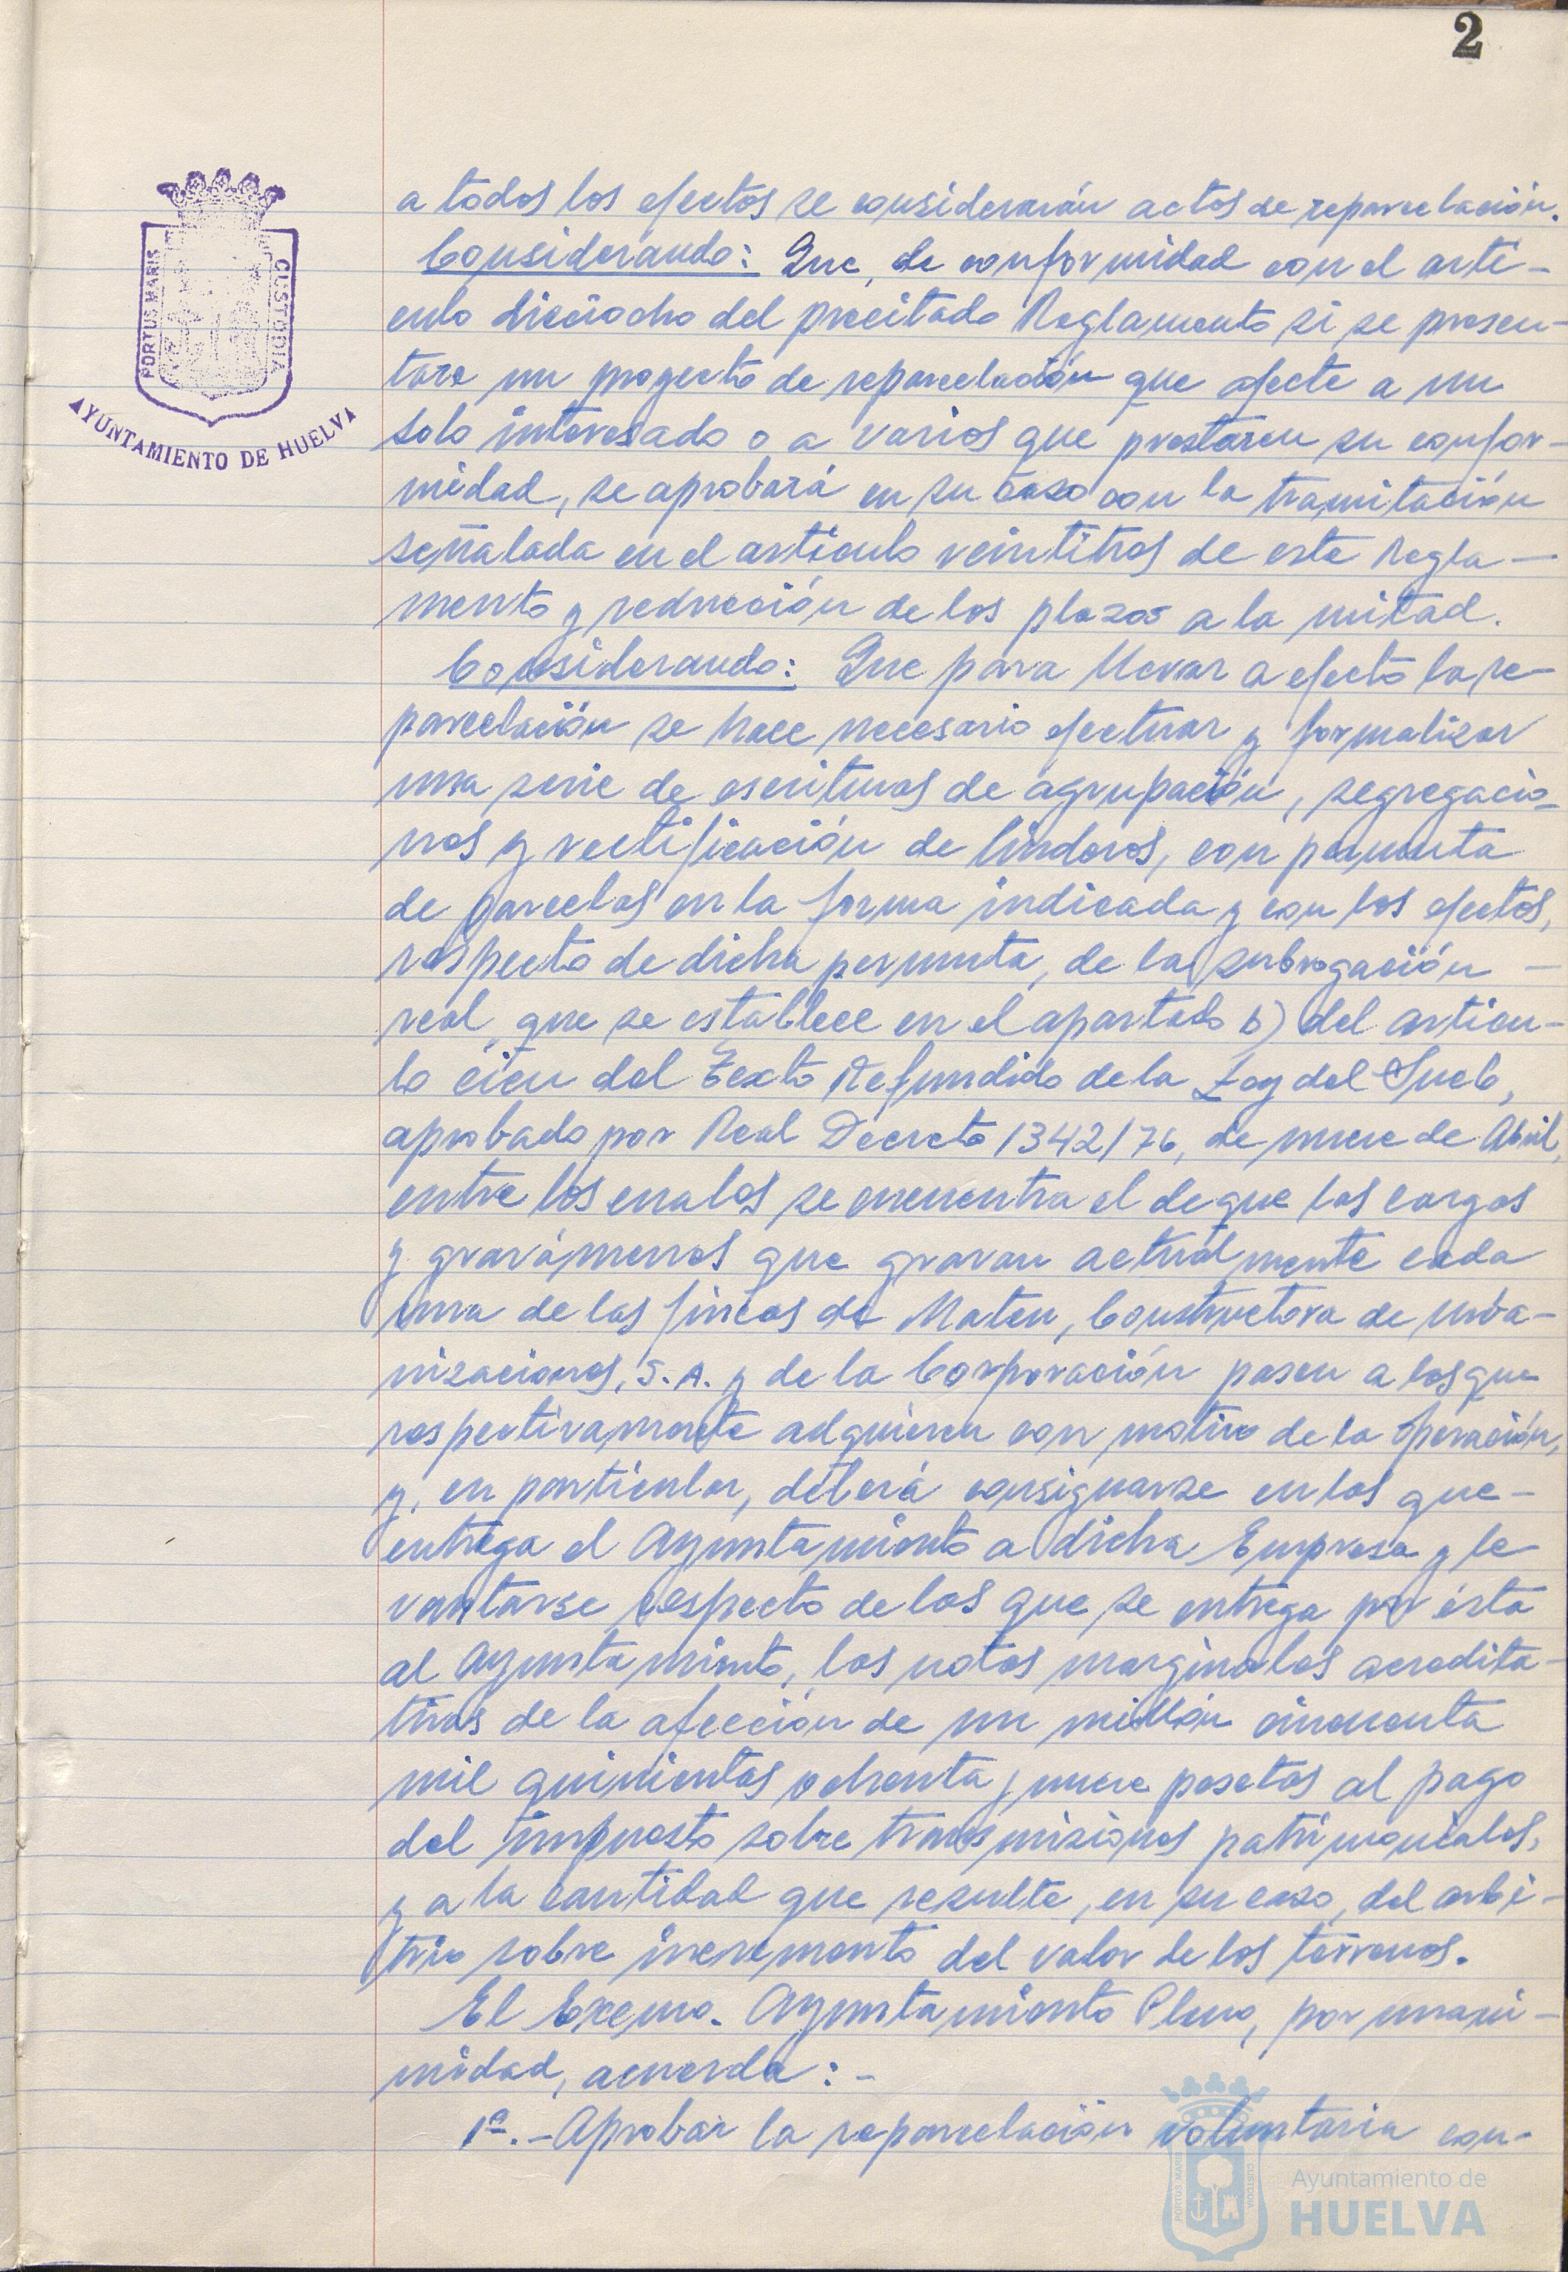 2
PORTUS MARIS
CUSTODIA
AYUNTAMIENTO DE HUELVA
a todos los efectos se considerarán actos de reparcelación.
Considerando: Que, de conformidad con el artí-
culo dieciocho del precitado Reglamento si se presen-
tare un proyecto de reparcelación que afecte a un
solo interesado o a varios que prestaren su confor-
midad, se aprobará en su caso con la tramitación
señalada en el artículo veintitrés de este Regla-
mento y reducción de los plazos a la mitad.
Considerando: Que para llevar a efecto la re-
parcelación se hace necesario efectuar y formalizar
una serie de escrituras de agrupación, segregacio-
nes y rectificación de linderos, con permuta
de parcelas en la forma indicada y con los efectos,
respecto de dicha permuta, de la subrogación -
real, que se establece en el apartado b) del artícu-
lo cien del Texto Refundido de la Ley del Suelo,
aprobado por Real Decreto 1342/76, de nueve de Abril,
entre los cuales se encuentra el de que las cargas
y gravámenes que gravan actualmente cada
una de las fincas de Mateu, Constructora de Urba-
nizaciones, S.A. y de la Corporación pasen a las que
respectivamente adquieren con motivo de la operación,
y, en particular, deberá consignarse en las que-
entrega el Ayuntamiento a dicha Empresa y le-
vantarse respecto de las que se entrega por ésta
al Ayuntamiento, las notas marginales acredita-
tivas de la afección de un millón cincuenta
mil quinientas ochenta y nueve pesetas al pago
del impuesto sobre transmisiones patrimoniales,
y a la cantidad que resulte, en su caso, del arbi-
trio sobre incremento del valor de los terrenos.
El Excmo. Ayuntamiento Pleno, por unani-
midad, acuerda: -
1º.- Aprobar la reparcelación voluntaria con-
Ayuntamiento de
HUELVA